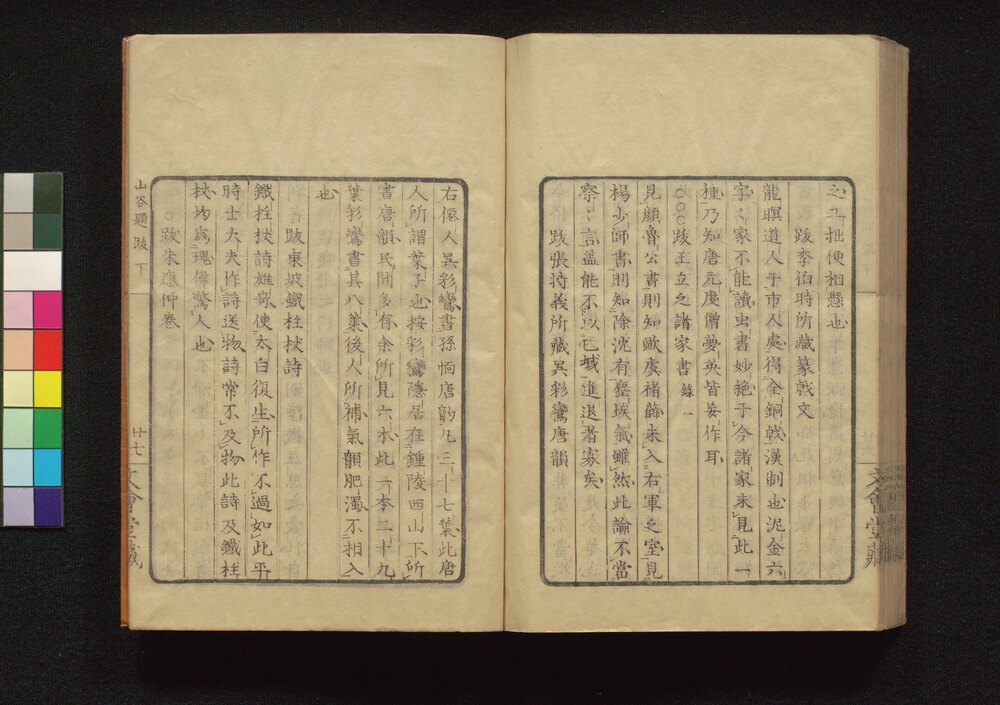 之工拙便相懸也
跋李伯時所藏篆戟文
龍眠道人于市人處得金銅戟漢制也泥金六
字字家不能讀虫書妙絶于今諸家未見此一
種乃知唐元度僧夢英皆妄作耳
跋王立之諸家書
見顔魯公書則知歐虞褚薛未入右軍之室見
楊少師書則知徐沈有塵埃氣雖然此論不當
察察言蓋能不以已域進退者寡矣
跋張持義所藏吳彩鸞唐韻
右僊人吳彩鸞書孫愐唐韵凡三十七葉此唐
人所謂葉子也按彩鸞隱居在鍾陵西山下所
書唐韻民間多有余所見六本此一本二十九
葉彩鸞書其八葉後人所補氣韻肥濁不相入
也
跋東坡鐵柱杖詩
鐵拄杖詩雄奇使太白復生所作不過如此平
時士大夫作詩送物詩常不及物此詩及鐵拄
杖均爲瑰偉驚人也
跋朱應仲卷
山谷題跋下
廿七
文會堂藏
文會堂藏